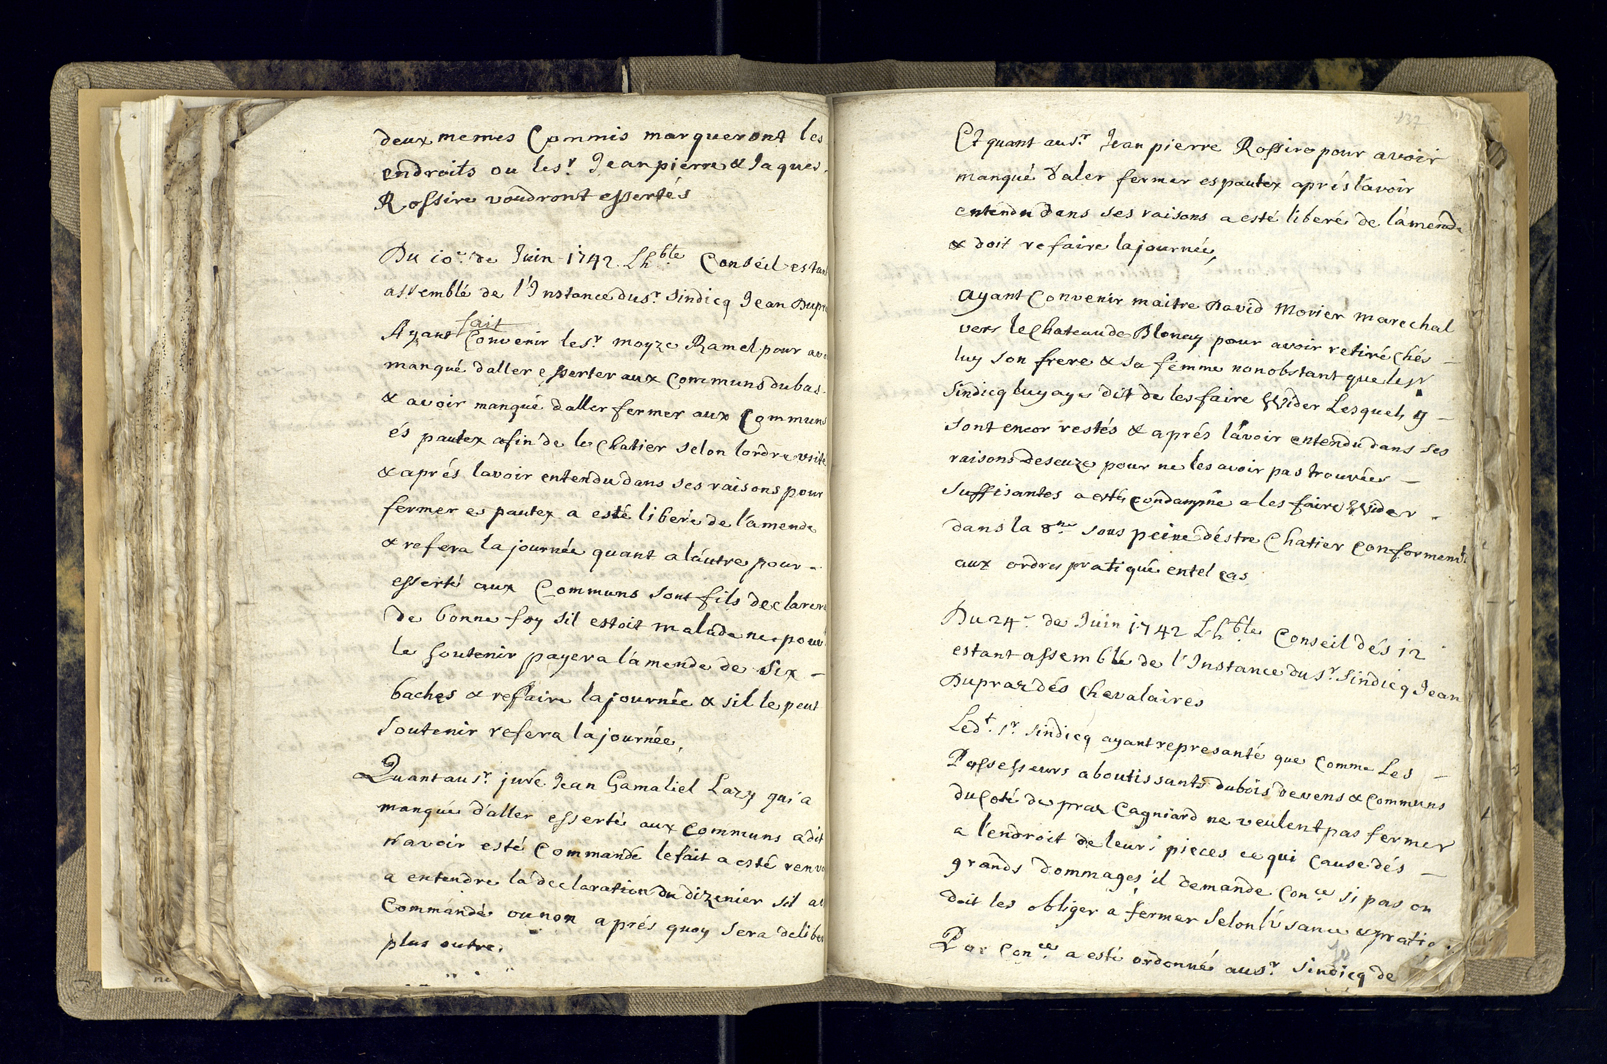 deux memes Commis marqueront les
endroits ou les.r Jean pierre & Jaques
Rossire voudront essertés
Du 10.e de Juin 1742. Lh.ble Conseil estant
assemblé de l'Instance du s.r Sindicq Jean Dupra
Ayant fait Convenir le s.r moyze Ramel pour avo
manqué d'aller esserter aux communs du bas
& avoir manqué d'aller fermer aux Communs
és pautex afin de le Chatier selon lordre usité
& aprés lavoir entendu dans ses raisons pour
fermer es pautex a esté liberé de l'amende
& refera la journée quant a láutre pour
esserté aux Communs sont fils declarera
de bonne foy sil estoit malade ne pouv
le soutenir payera l'amende de six
baches & reffaire la journée & sil le peut
soutenir refera la journée,
Quant au s.r juré Jean Gamaliel Lazy qui a
manqué d'aller esserté aux communs a dit
n'avoir esté Commandé le fait a esté renv
a entendre la declaration du dizenier sil a
Commandé ou non aprés quoy sera delibe
plus outre.
132
Et quant au s.r Jean pierre Rossire pour avoir
manqué d'aler fermer es pautex aprés lavoir
entendu dans ses raisons a esté liberé de l'amende
& doit refaire la journée,
Ayant Convenir maitre David Monier marechal
vers le Chateau de Blonay pour avoir retiré chés
luy son frere & sa femme nonobstant que le s.r
Sindicq luy aye dit de les faire Wider Lesquels y
sont encor restés & aprés lavoir entendu dans ses
raisons deseuze pour ne les avoir pas trouvées
suffisantes a esté condampné a les faire Wider
dans la 8.ne sous peine déstre Chatier conformem.t
aux ordres pratiqué en tel cas
Du 24.e de Juin 1742 Lh.ble Conseil dés 12
estant assemblé de l'Instance du s.r Sindicq Jean
Dupraz dés Chevalaires
Led.t s.r Sindicq ayant represanté que comme Les
Possesseurs aboutissants du bois devens & communs
du coté de praz Cagniard ne veulent pas fermer
a l'endroit de leurs pieces ce qui cause dés
grands dommages il demande con.ce si pas on
doit les obliger a fermer selon lúsance & pratiq.
Par con.ce a esté ordonné au s.r Sindicq de